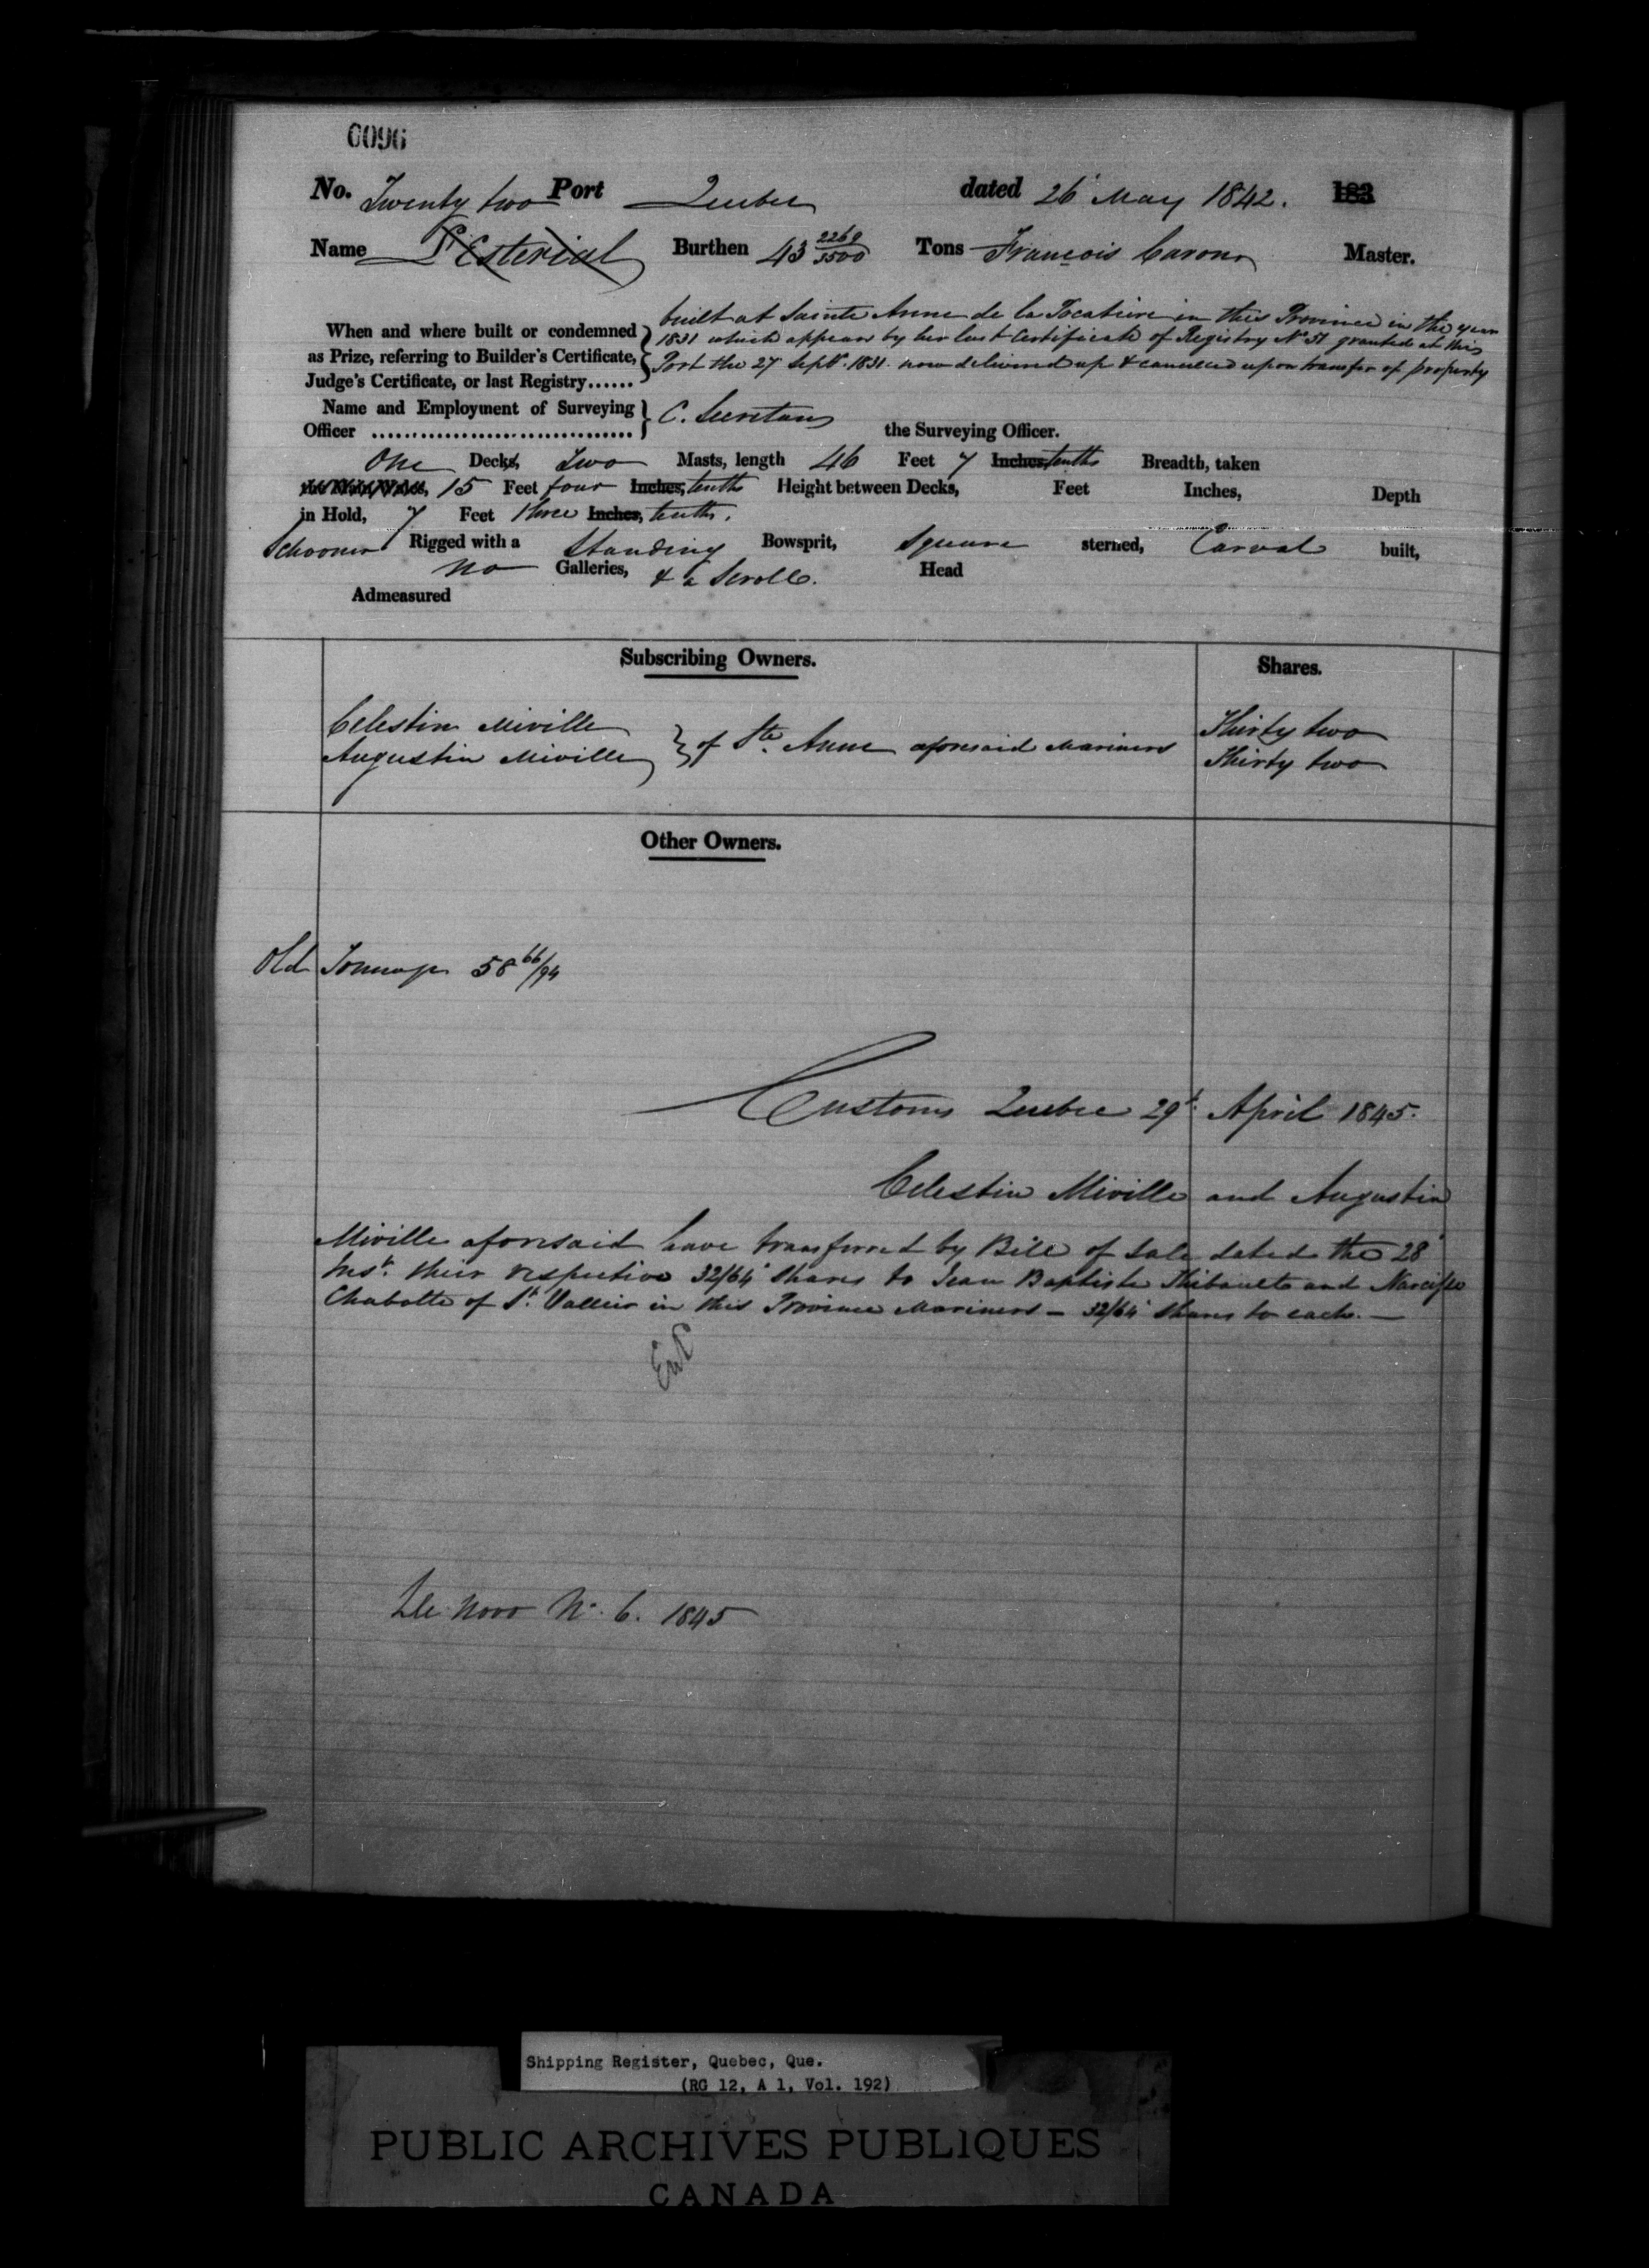 0096
No. Twenty two Port Quebec dated 26 May 1842. 183
Name L'Esterial Burthen 43 2269/3500 Tons François Caron Master.
When and where built or condemned as Prize, referring to Builder's Certificate, Judge's Certificate, or last Registry......
built at Sainte Anne de la Pocatiere in this Province in the year
1831 which appears by her last Certificate of Registry No 51 granted at this
Port the 27 Septr. 1831. now delivered up & cancelled upon transfer of property
Name and Employment of Surveying Officer ................................ C. Secretan the Surveying Officer.
One Decks, Two Masts, length 46 Feet 7 Inches, tenths Breadth, taken
15 Feet four Inches, tenths Height between Decks, Feet Inches, Depth
in Hold, 7 Feet three Inches, tenths.
Schooner Rigged with a Standing Bowsprit, Square sterned, Carval built,
no Galleries, & a Scroll. Head
Admeasured
Subscribing Owners. Shares.
Celestin Miville Thirty two
Augustin Miville } of Ste. Anne aforesaid Mariners Thirty two
Other Owners.
Old Tonnage 58 66/94
Customs Quebec 29t. April 1845.
Celestin Miville and Augustin
Miville aforesaid have transferred by Bill of Sale dated the 28
Inst. their respective 32/64 Shares to Jean Baptiste Thibault and Narcisse
Chabotte of St. Vallier in this Province Mariners — 32/64 Shares to each. —
De Novo No. 6. 1845
Shipping Register, Quebec, Que.
(RG 12, A 1, Vol. 192)
PUBLIC ARCHIVES PUBLIQUES
CANADA